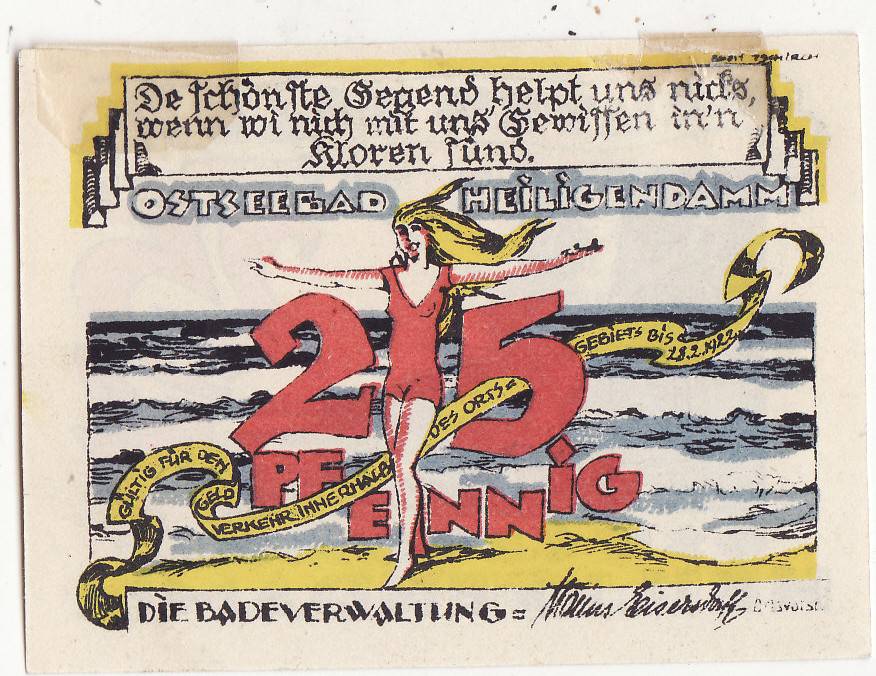 De schönste Gegend helpt uns nicks,
wenn wi nich mit uns' Gewissen in'n
Kloren sünd.
OSTSEEBAD HEILIGENDAMM
25
PFENNIG
GÜLTIG FÜR DEN
GELD
VERKEHR INNERHALB
DES ORTS=
GEBIETS BIS
28.2.1922.
DIE BADEVERWALTUNG=